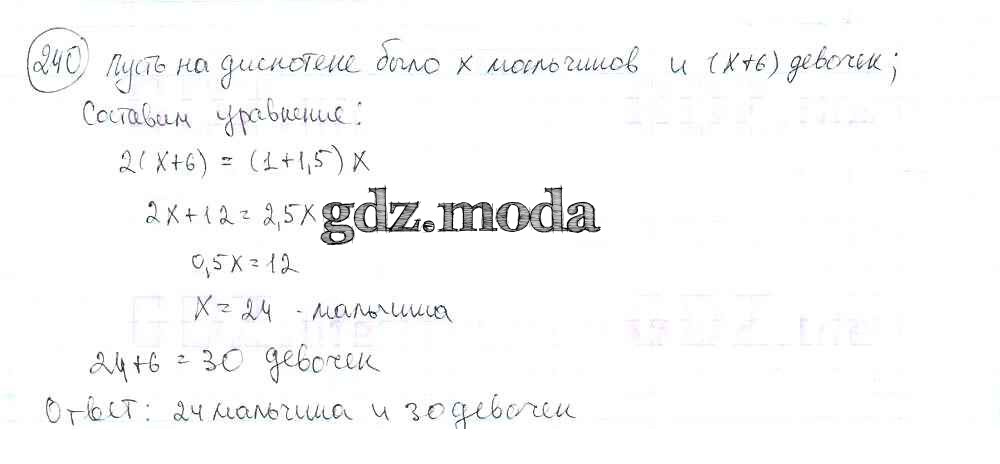 240 Пусть на дискотеке было x мальчиков и (x+6) девочек;
Составим уравнение:
2(x+6) = (1+1,5)x
2x+12 = 2,5x
gdz.moda
0,5x = 12
x = 24 - мальчика
24+6 = 30 девочек
Ответ: 24 мальчика и 30 девочек